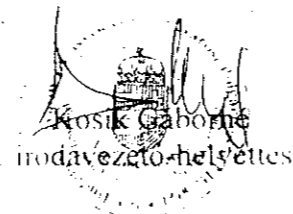 Kosik Gáborné
irodavezető-helyettes